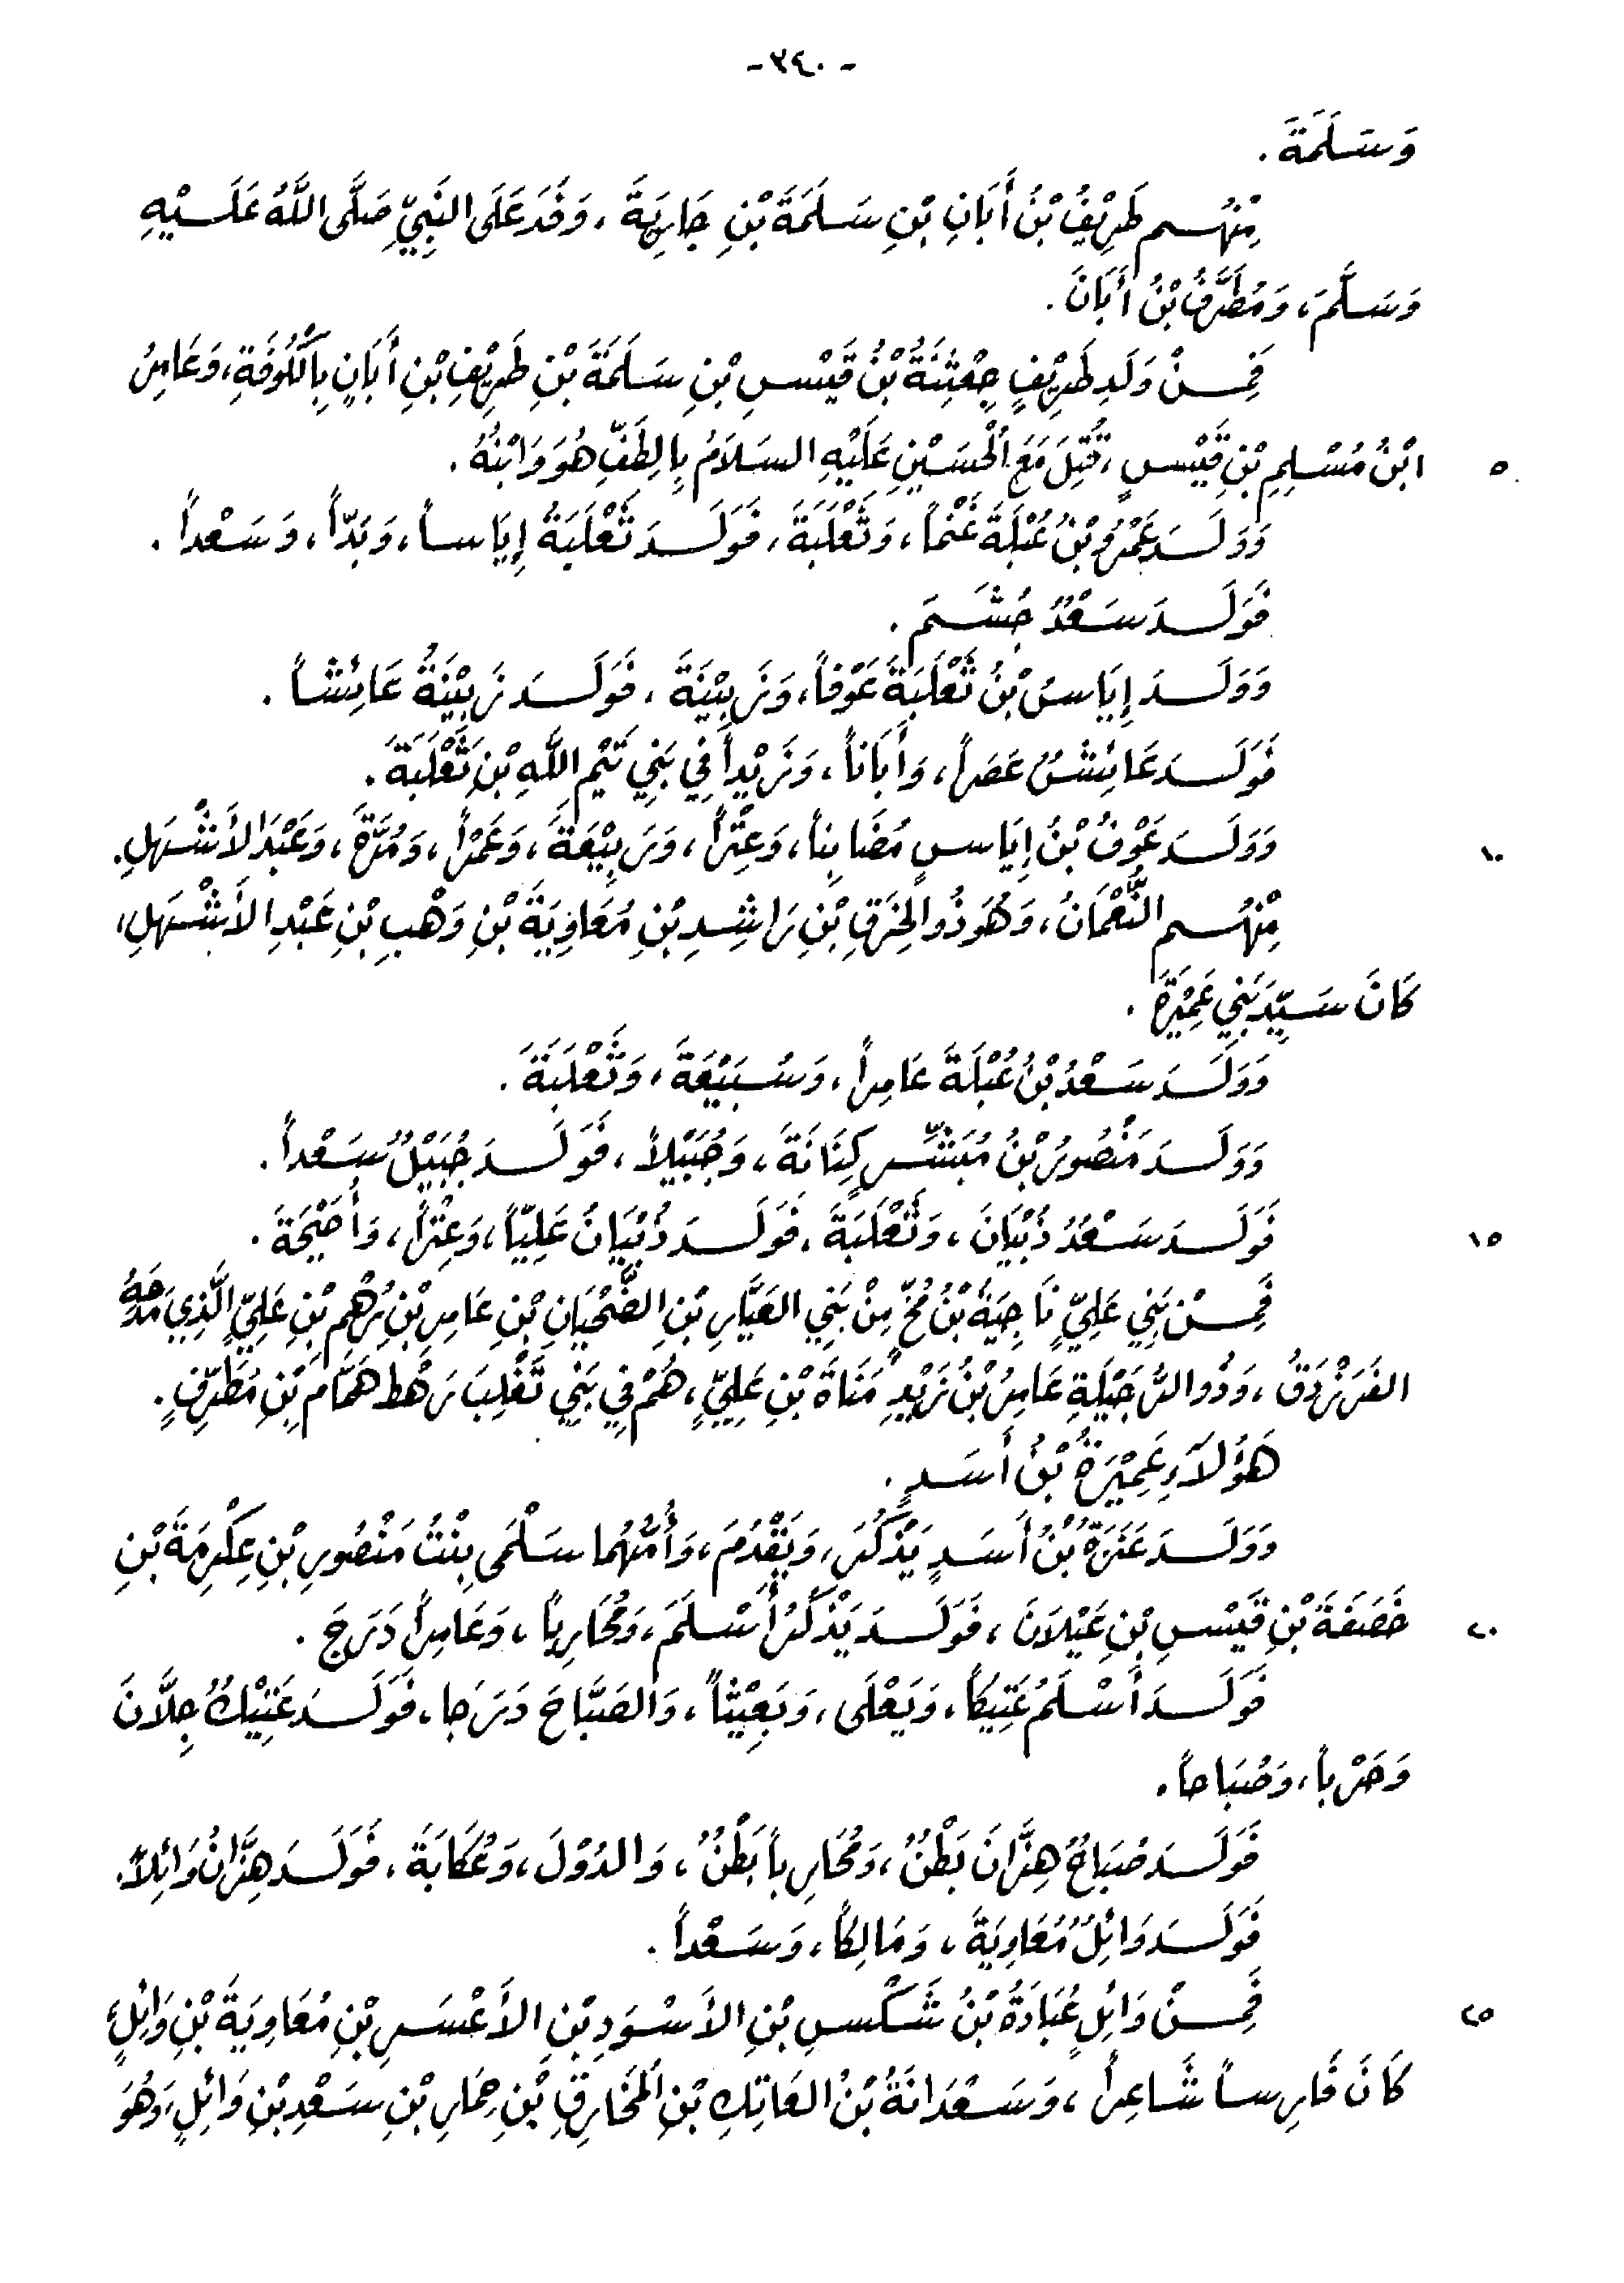 - ٣٤٠ -
وَسَلَمَةَ .
مِنْهُم طَرِيْفُ بْنُ أَبَانِ بْنِ سَلَمَةَ بْنِ جَارِيَةَ ، وَفَدَ عَلَى النَبِيِّ صَلَّى اللَّهُ عَلَيْهِ
وَسَلَّمَ ، وَمُطَرَّفُ بْنُ أَبَانَ .
فَمِنْ وَلَدِ طَرِيْفٍ جِعْثِنَةُ بْنُ قَيْسِ بْنِ سَلَمَةَ بْنِ طَرِيْفِ بْنِ أَبَانٍ بِالكُوفَةِ ، وَعَامِرُ
٥ ابْنُ مُسْلِمِ بْنِ قَيْسٍ ، قُتِلَ مَعَ الْحُسَيْنِ عَلَيْهِ السَلَامُ بِالطَفِّ هُوَ وَابْنُهُ .
وَوَلَدَ عَمْرُو بْنُ عُبْلَةَ غَنْماً ، وَثَعْلَبَةَ ، فَوَلَدَ ثَعْلَبَةُ إِيَاساً ، وَبَدّاً ، وَسَعْداً .
فَوَلَدَ سَعْدٌ جُشَمَ .
وَوَلَدَ إِيَاسُ بْنُ ثَعْلَبَةَ عَوْفاً ، وَزَبِيْنَةَ ، فَوَلَدَ زَبِيْنَةُ عَائِشاً .
فَوَلَدَ عَائِشٌ عَصَراً ، وَأَبَاناً ، وَزَيْداً فِي بَنِي تَيْمِ اللَّهِ بْنِ ثَعْلَبَةَ .
١٠ وَوَلَدَ عَوْفُ بْنُ إِيَاسٍ مُضَابِناً ، وَعِتْراً ، وَرَبِيْعَةَ ، وَعَمْراً ، وَمُرَّةَ ، وَعَبْدَ الأَشْهَلِ .
مِنْهُم النُّعْمَانُ ، وَهُوَ ذُو الخِرَقِ بْنِ رَاشِدِ بْنِ مُعَاوِيَةَ بْنِ وَهْبِ بْنِ عَبْدِ الأَشْهَلِ ،
كَانَ سَيِّدَ بَنِي عَمِيْرَةَ .
وَوَلَدَ سَعْدُ بْنُ عُبْلَةَ عَامِراً ، وَسُبَيْعَةَ ، وَثَعْلَبَةَ .
وَوَلَدَ مَنْصُورُ بْنُ مُبَشِّرٍ كِنَانَةَ ، وَجُبَيْلاً ، فَوَلَدَ جُبَيْلٌ سَعْداً .
١٥ فَوَلَدَ سَعْدٌ ذُبْيَانَ ، وَثَعْلَبَةَ ، فَوَلَدَ ذُبْيَانُ عَلِيّاً ، وَعِتْراً ، وَأُحَيْحَةَ .
فَمِنْ بَنِي عَلِيٍّ نَاجِيَةُ بْنُ مُخٍّ مِنْ بَنِي العَيَّارِ بْنِ الضَّحْيَانِ بْنِ عَامِرِ بْنِ رُهْمِ بْنِ عَلِيٍّ الَّذِي مَدَحَهُ
الفَرَزْدَقُ ، وَذُو الرُّجَيْلَةِ عَامِرُ بْنُ زَيْدِ مَنَاةَ بْنِ عَلِيٍّ ، هُمْ فِي بَنِي تَغْلِبَ رَهْطُ هَمَّامِ بْنِ مُطَرِّفٍ .
هَؤُلَاءِ عَمِيْرَةُ بْنُ أَسَدٍ .
وَوَلَدَ عَنَزَةُ بْنُ أَسَدٍ يَذْكُرَ ، وَيَقْدُمَ ، وَأُمُّهُما سَلْمَى بِنْتُ مَنْصُورِ بْنِ عِكْرِمَةَ بْنِ
٢٠ خَصَفَةَ بْنِ قَيْسِ بْنِ عَيْلَانَ ، فَوَلَدَ يَذْكُرُ أَسْلَمَ ، وَمُحَارِباً ، وَعَامِراً دَرَجَ .
فَوَلَدَ أَسْلَمُ عَتِيكاً ، وَيَعْلَى ، وَبَعِيْثاً ، وَالصَبَّاحَ دَرَجَا ، فَوَلَدَ عَتِيْكٌ جِلَّانَ
وَحَرْباً ، وَصُبَاحاً .
فَوَلَدَ صُبَاحٌ هِزَّانَ بَطْنٌ ، وَمُحَارِباً بَطْنٌ ، وَالدُوْلَ ، وَعُكَابَةَ ، فَوَلَدَ هِزَّانُ وَائِلاً .
فَوَلَدَ وَائِلٌ مُعَاوِيَةَ ، وَمَالِكاً ، وَسَعْداً .
٢٥ فَمِنْ وَائِلٍ عُبَادَةُ بْنُ شَكْسِ بْنِ الأَسْوَدِ بْنِ الأَعْسَرِ بْنِ مُعَاوِيَةَ بْنِ وَائِلٍ ،
كَانَ فَارِساً شَاعِراً ، وَسَعْدَانَةُ بْنُ العَاتِكِ بْنِ المُخَارِقِ بْنِ حِمَارِ بْنِ سَعْدِ بْنِ وَائِلٍ ، وَهُوَ